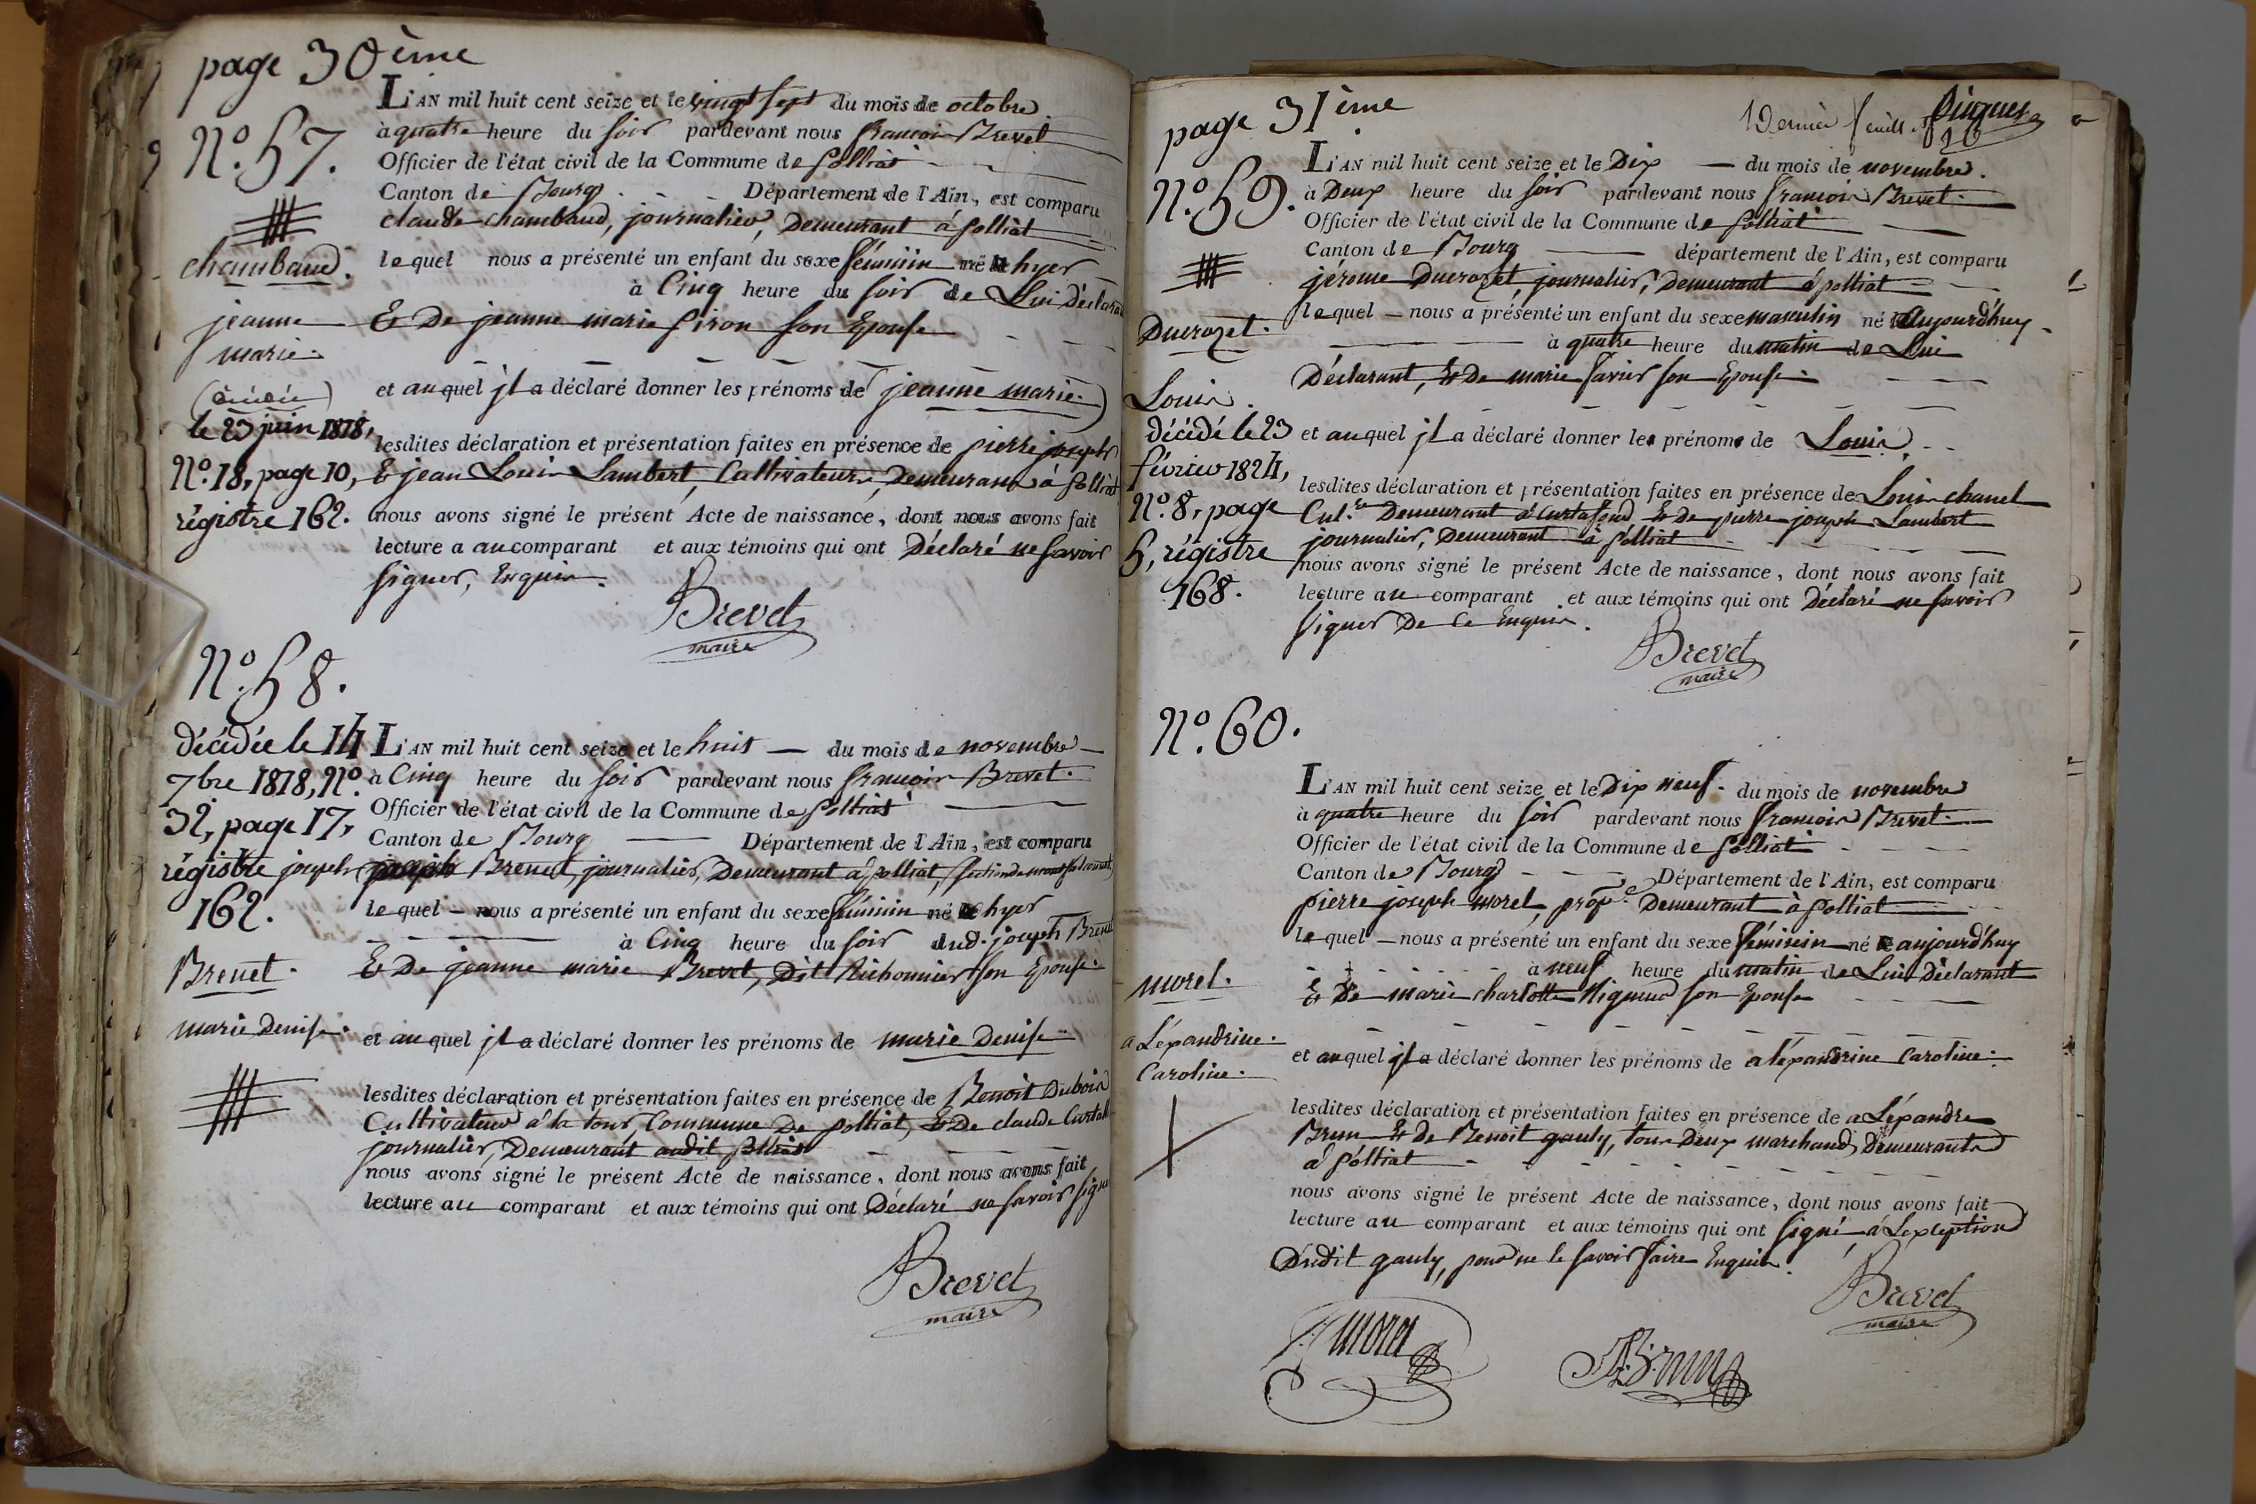 page 30ème
N.° 57.
chambaud.
jeanne
marie.
le 23 juin 1818,
N.° 18, page 10,
régistre 162.
L'AN mil huit cent seize et le vingt sept du mois de octobre
à quatre heure du soir pardevant nous francois Brevet
Officier de l'état civil de la Commune de polliat
Canton de Bourg Département de l'Ain, est comparu
claude chambaud, journalier, Demeurant à polliat
lequel nous a présenté un enfant du sexe féminin né hyer
à Cinq heure du soir de Lui Déclarant
& De jeanne marie piron son Epouse
et auquel jl a déclaré donner les prénoms de (jeanne marie.)
lesdites déclaration et présentation faites en présence de pierre joseph
& jean Louis Lambert, Cultivateurs, Demeurans à polliat
nous avons signé le présent Acte de naissance, dont nous avons fait
lecture a au comparant et aux témoins qui ont Déclaré ne savoir
signer, Enquis.
Brevet
maire
N.° 58.
décédée le 14
7bre 1818, N.°
32, page 17,
régistre
162.
Brenet.
marie Denise.
L'AN mil huit cent seize et le huit du mois de novembre
à Cinq heure du soir pardevant nous francois Brevet.
Officier de l'état civil de la Commune de polliat
Canton de Bourg Département de l'Ain, est comparu
joseph Brenet, journalier, Demeurant à polliat,
lequel nous a présenté un enfant du sexe féminin né hyer
à Cinq heure du soir dud. joseph Brenet
& De jeanne marie Brevet, Dit Richonnier son Epouse.
et auquel jl a déclaré donner les prénoms de marie Denise
lesdites déclaration et présentation faites en présence de Benoit Dubois
Cultivateur à la tour, Commune De polliat, & De claude
journalier, Demeurant audit polliat
nous avons signé le présent Acte de naissance, dont nous avons fait
lecture au comparant et aux témoins qui ont Déclaré ne savoir signer
Brevet
maire
page 31ème
Dernier feuillet
N.° 59.
Ducrozet.
Louis.
décédé le 23
février 1824,
N.° 8, page
5, régistre
168.
L'AN mil huit cent seize et le Dix du mois de novembre.
à Deux heure du soir pardevant nous francois Brevet.
Officier de l'état civil de la Commune de polliat
Canton de Bourg département de l'Ain, est comparu
jérome Ducrozet, journalier, Demeurant à polliat
lequel nous a présenté un enfant du sexe masculin né aujourd'huy
à quatre heure du matin de Lui
Déclarant, & De marie savier son Epouse.
et auquel jl a déclaré donner les prénoms de Louis.
lesdites déclaration et présentation faites en présence de Louis chanel
Cul.re Demeurant à Curtafond & De pierre joseph Lambert
journalier, Demeurant à polliat
nous avons signé le présent Acte de naissance, dont nous avons fait
lecture au comparant et aux témoins qui ont Déclaré ne savoir
signer De Ce Enquis.
Brevet
maire
N.° 60.
morel.
aLéxandrine.
Caroline.
L'AN mil huit cent seize et le Dix neuf. du mois de novembre
à quatre heure du soir pardevant nous francois Brevet.
Officier de l'état civil de la Commune de polliat
Canton de Bourg Département de l'Ain, est comparu
pierre joseph morel, prop.re Demeurant à polliat
lequel nous a présenté un enfant du sexe féminin né aujourd'huy
à neuf heure du matin de Lui Déclarant
& De marie charlotte son Epouse
et auquel jl a déclaré donner les prénoms de aléxandrine Caroline.
lesdites déclaration et présentation faites en présence de aLéxandre
Brun & De Benoit gauly, tous Deux marchands Demeurants
à polliat
nous avons signé le présent Acte de naissance, dont nous avons fait
lecture au comparant et aux témoins qui ont signé, à Lexception
Dudit gauly, pour ne le savoir faire Enquis.
Brevet
maire
morel
Brun